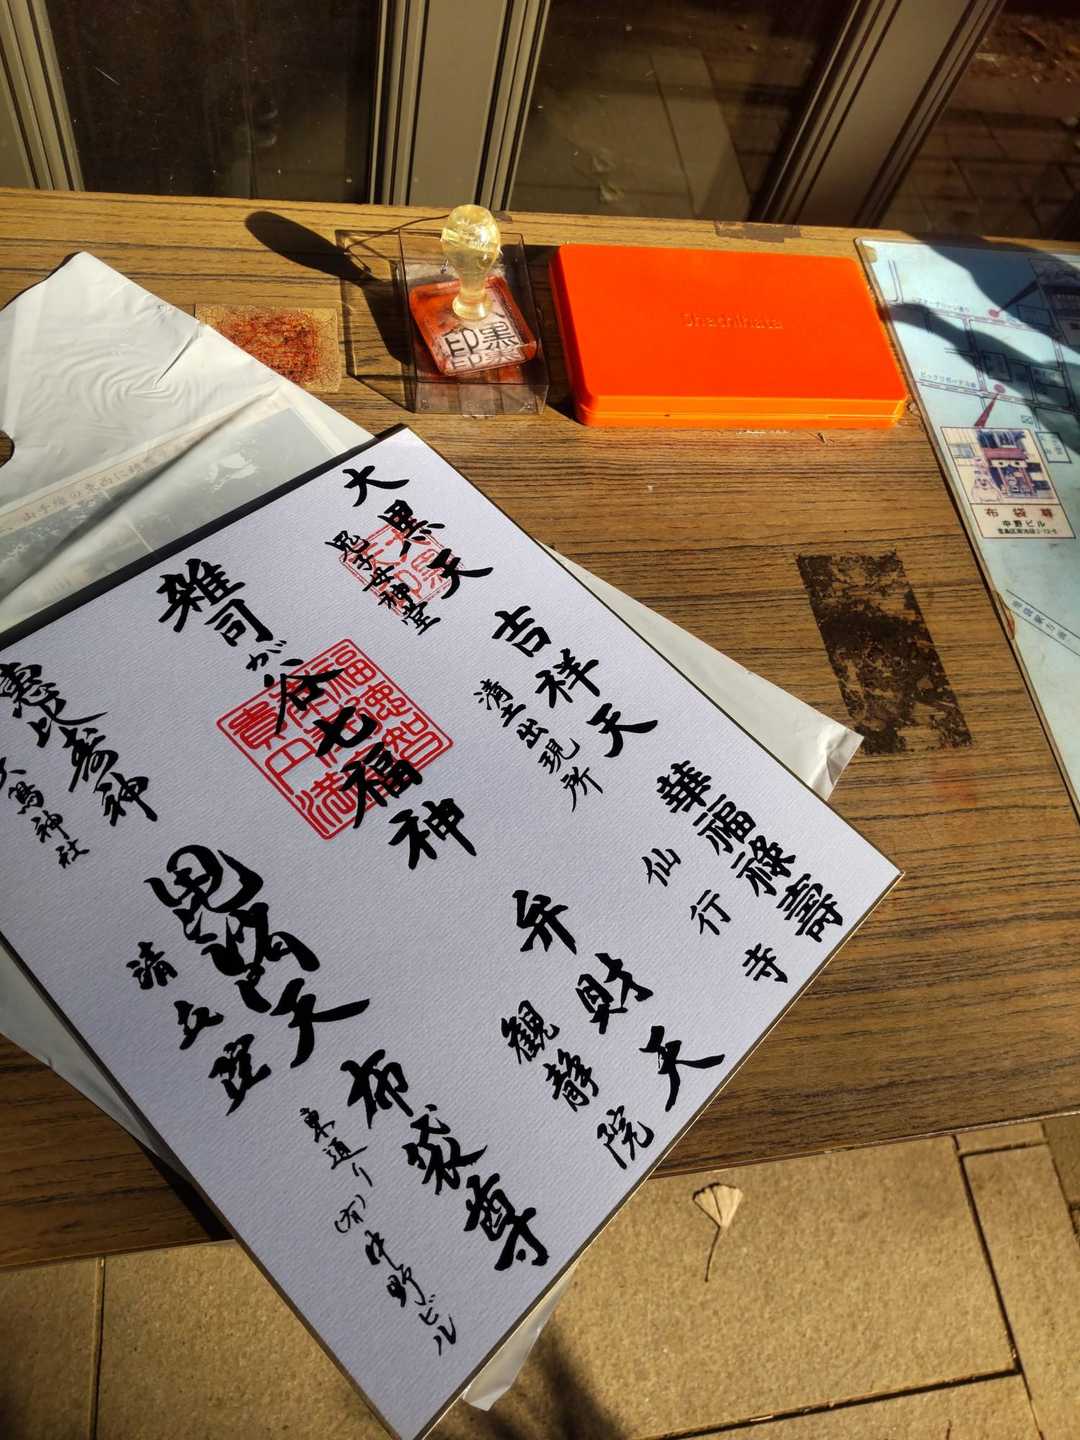 Shachihata
大黒天
鬼子母神堂
吉祥天
清土出現所
華福禄壽
仙行寺
雑司が谷七福神
弁財天
観静院
恵比寿神
大鳥神社
毘沙門天
清立院
布袋尊
東通り(有)中野ビル
布袋尊
中野ビル